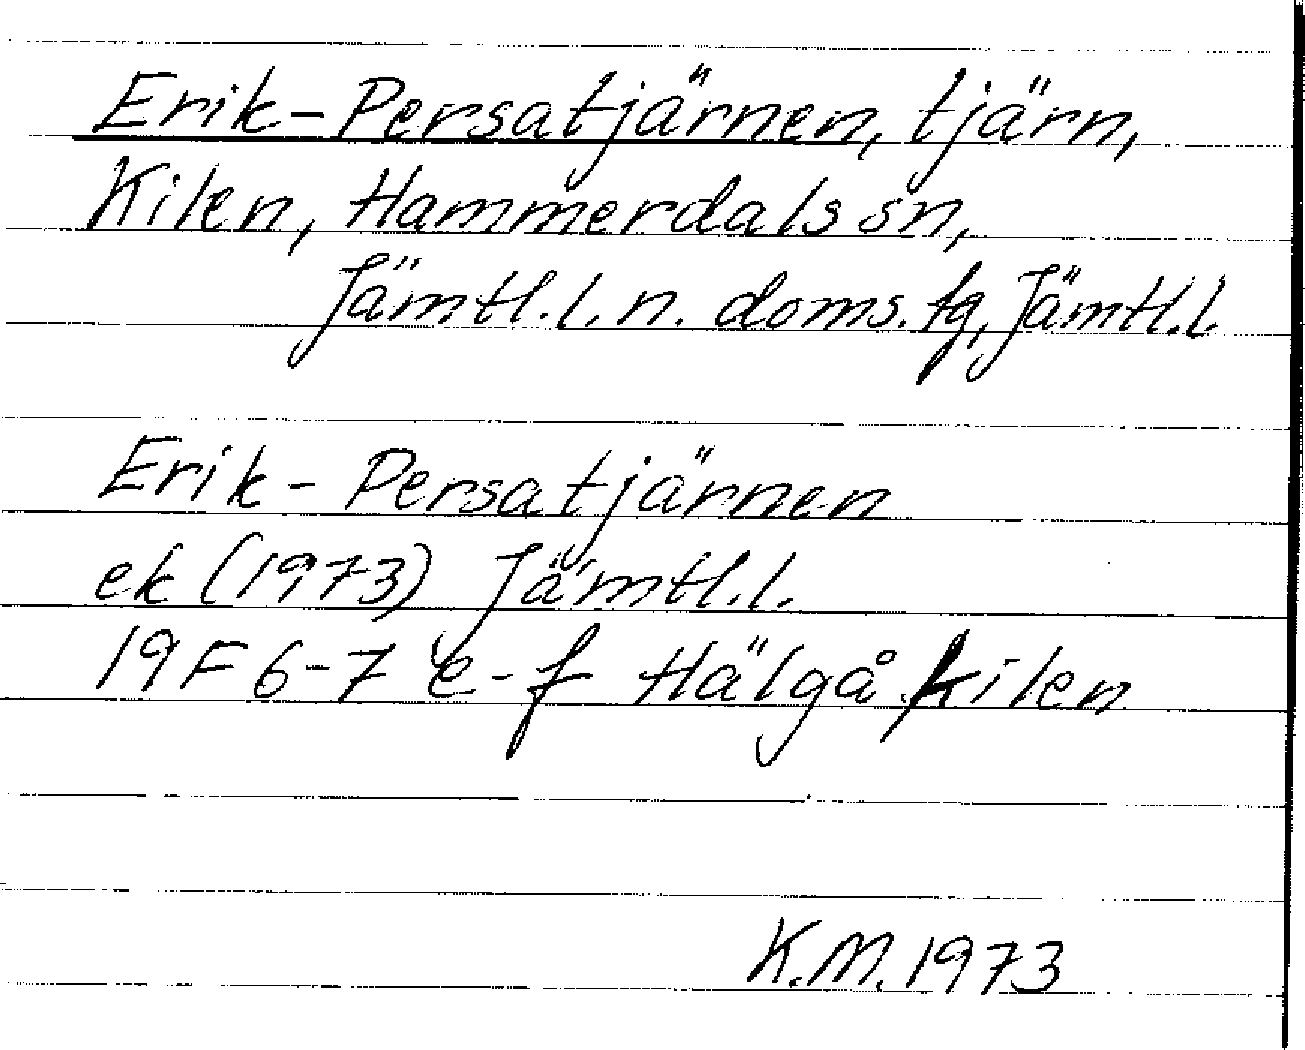 Erik-Persatjärnen, tjärn,
Kilen, Hammerdals sn,
Jämtl.l. n. doms. tg, Jämtl.l.
Erik-Persatjärnen
ek (1973) Jämtl.l.
19F 6-7 e-f Hälgå kilen
K.M. 1973